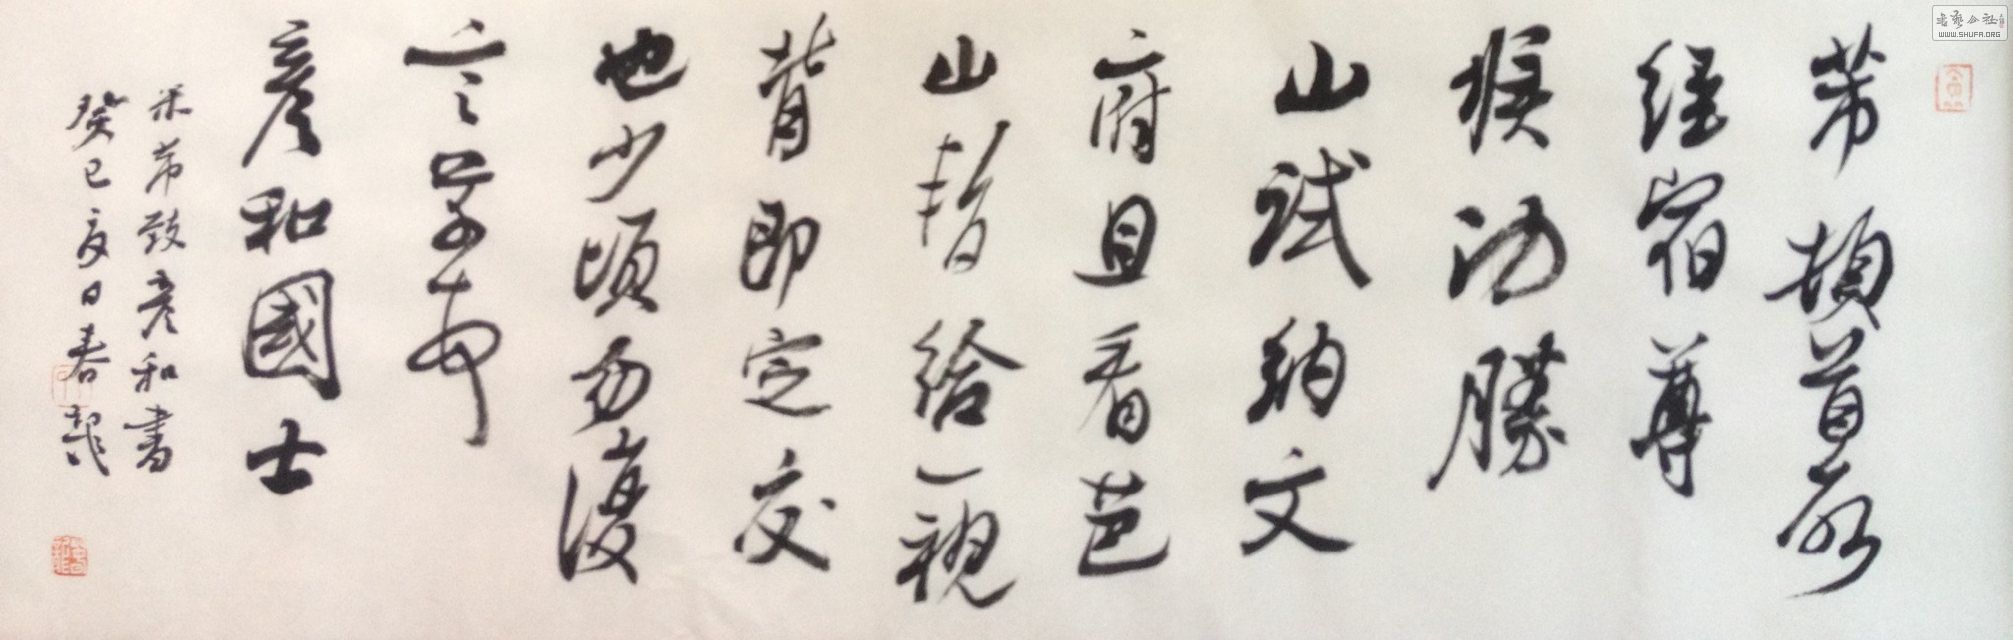 書藝公社
WWW.SHUFA.ORG
芾頓首啟
經宿尊
候沖勝
山試納文
府且看芭
山暫給一視
背即定交
也少頃勿復
言
彥和國士
米芾致彥和書
癸巳夏日春